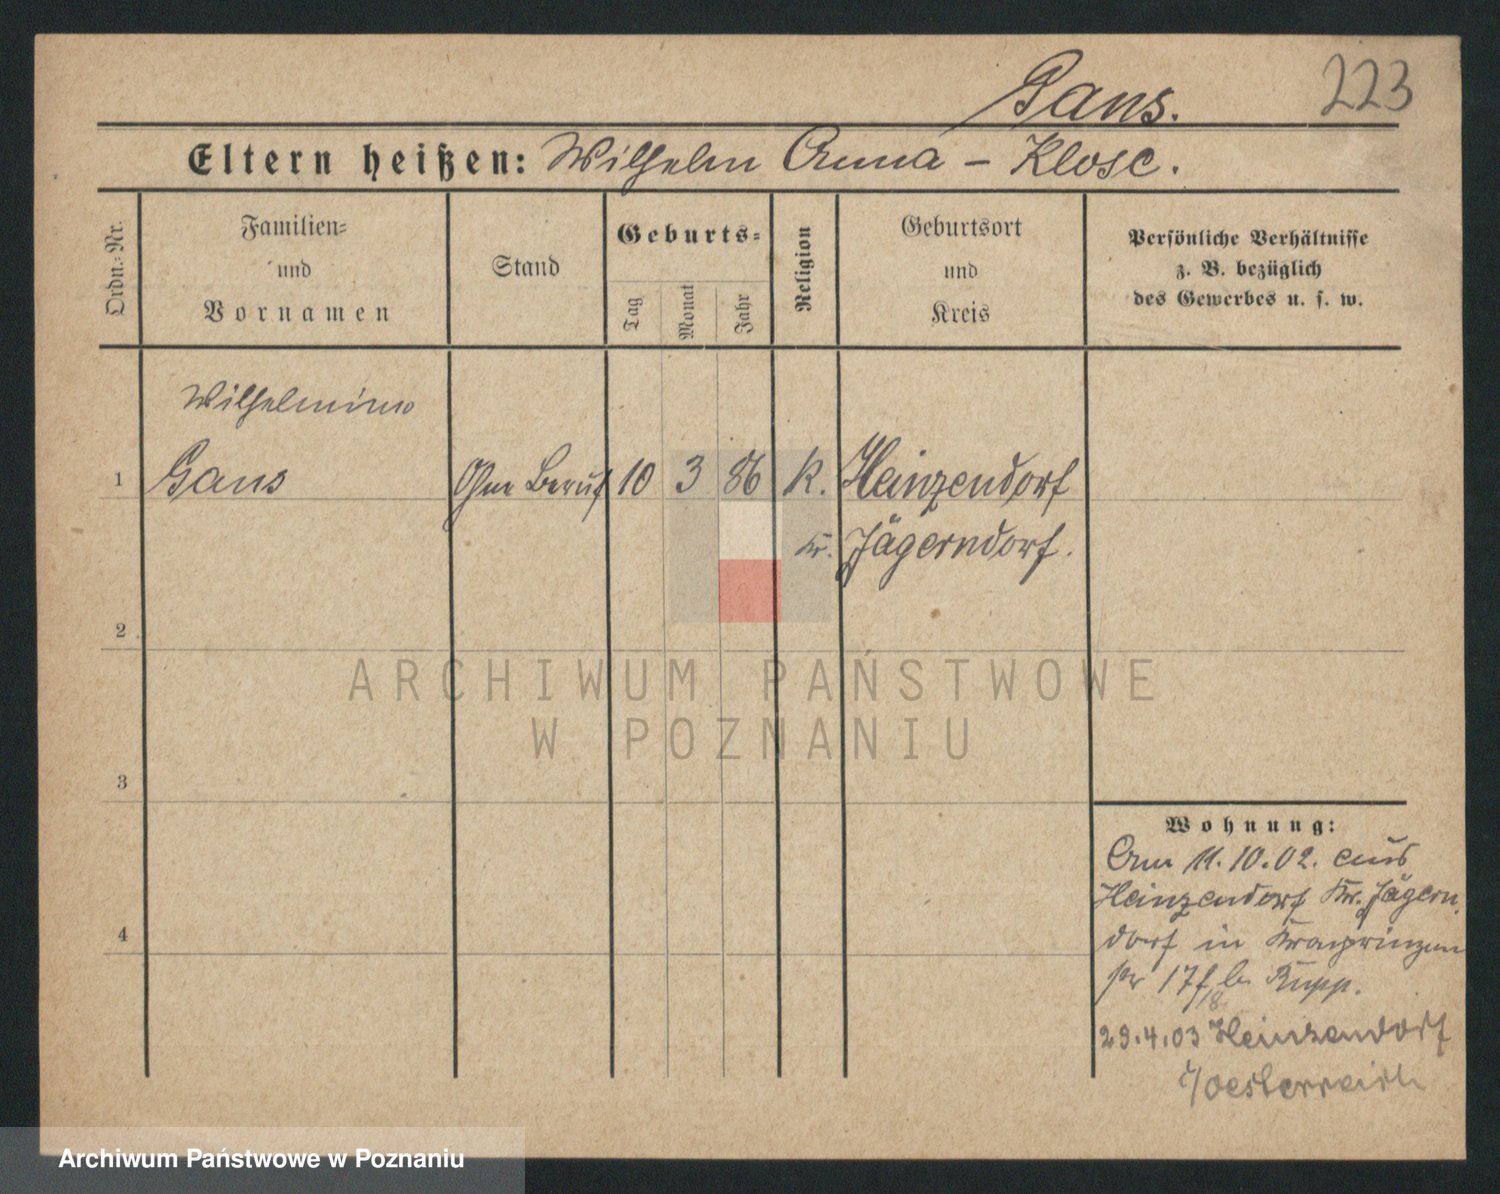 Gans.
223
Eltern heißen: Wilhelm Anna – Klose.
Ordn.-Nr.
Familien-
und
Vornamen
Stand
Geburts-
Tag
Monat
Jahr
Religion
Geburtsort
und
Kreis
Persönliche Verhältnisse
z. B. bezüglich
des Gewerbes u. s. w.
Wilhelmine
1 Gans Ohne Beruf 10 3 86 K. Heinzendorf
Kr. Jägerndorf.
2
ARCHIWUM PAŃSTWOWE
W POZNANIU
3
Wohnung:
Am 11.10.02. aus
Heinzendorf Kr. Jägern
4
dorf in Kronprinzen
str 17f b. Rupp.
29.4.03 Heinzendorf
i/Oesterreich
Archiwum Państwowe w Poznaniu